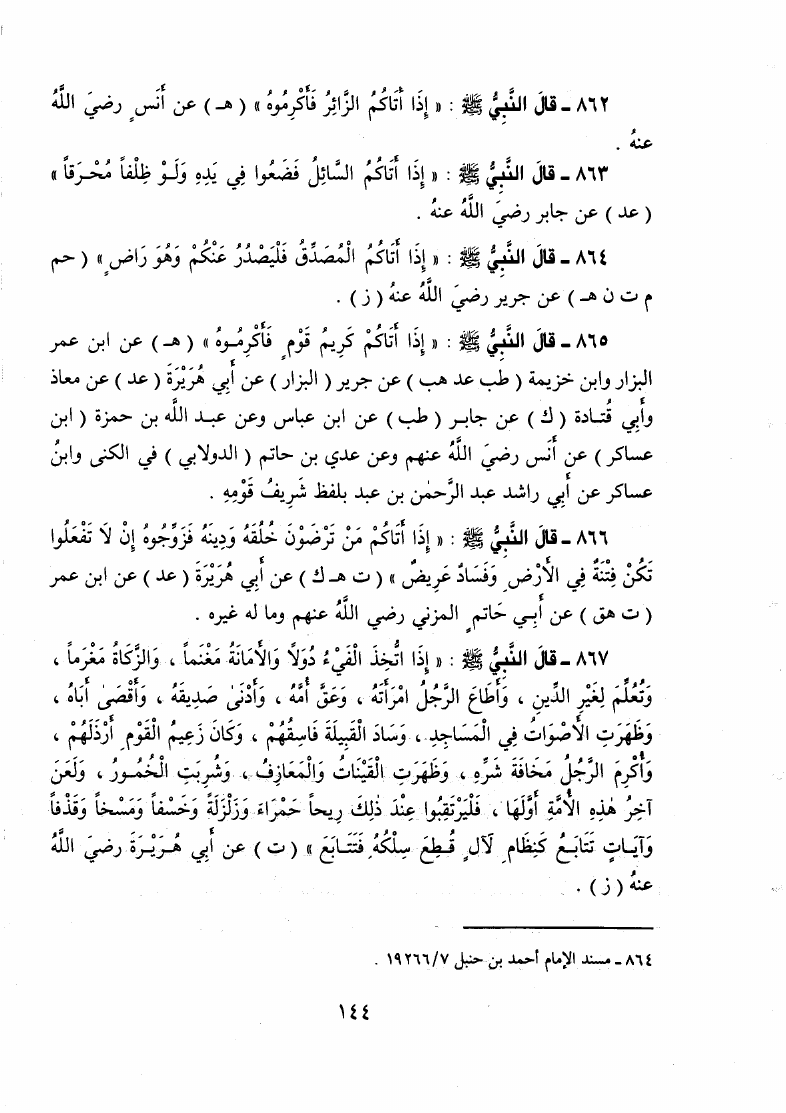 ٨٦٢ ـ قالَ النَّبِيُّ ﷺ : « إِذَا أَتَاكُمُ الزَّائِرُ فَأَكْرِمُوهُ » ( هـ ) عن أَنَسٍ رضيَ اللَّهُ
عنهُ .
٨٦٣ ـ قالَ النَّبِيُّ ﷺ : « إِذَا أَتَاكُمُ السَّائِلُ فَضَعُوا فِي يَدِهِ وَلَـوْ ظِلْفاً مُحْـرَقاً »
( عد ) عن جابر رضيَ اللَّهُ عنهُ .
٨٦٤ ـ قالَ النَّبِيُّ ﷺ : « إِذَا أَتَاكُمُ الْمُصَدِّقُ فَلْيَصْدُرْ عَنْكُمْ وَهُوَ رَاضٍ » ( حم
م ت ن هـ ) عن جرير رضيَ اللَّهُ عنهُ ( ز ) .
٨٦٥ ـ قالَ النَّبِيُّ ﷺ : « إِذَا أَتَاكُمْ كَرِيمُ قَوْمٍ فَأَكْرِمُـوهُ » ( هـ ) عن ابن عمر
البزار وابن خزيمة ( طب عد هب ) عن جرير ( البزار ) عن أَبِي هُرَيْرَةَ ( عد ) عن معاذ
وأَبِي قُتـادة ( ك ) عن جابـر ( طب ) عن ابن عباس وعن عبـد اللَّه بن حمزة ( ابن
عساكر ) عن أَنس رضيَ اللَّهُ عنهم وعن عدي بن حاتم ( الدولابي ) في الكنى وابنُ
عساكر عن أَبي راشد عبد الرَّحمٰن بن عبد بلفظ شَرِيفُ قَوْمِهِ .
٨٦٦ ـ قالَ النَّبِيُّ ﷺ : « إِذَا أَتَاكُمْ مَنْ تَرْضَوْنَ خُلُقَهُ وَدِينَهُ فَزَوِّجُوهُ إِنْ لَا تَفْعَلُوا
تَكُنْ فِتْنَةٌ فِي الأَرْضِ وَفَسَادٌ عَرِيضٌ » ( ت هـ ك ) عن أَبِي هُرَيْرَةَ ( عد ) عن ابن عمر
( ت هق ) عن أَبـي حَاتمٍ المزني رضي اللَّهُ عنهم وما له غيره .
٨٦٧ ـ قالَ النَّبِيُّ ﷺ : « إِذَا اتُّخِذَ الْفَيْءُ دُوَلاً وَالأَمَانَةُ مَغْنَماً ، وَالزَّكَاةُ مَغْرَماً ،
وَتُعُلِّمَ لِغَيْرِ الدِّينِ ، وَأَطَاعَ الرَّجُلُ امْرَأَتَهُ ، وَعَقَّ أُمَّهُ ، وَأَدْنَىٰ صَدِيقَهُ ، وَأَقْصَىٰ أَبَاهُ ،
وَظَهَرَتِ الأَصْوَاتُ فِي الْمَسَاجِدِ ، وَسَادَ الْقَبِيلَةَ فَاسِقُهُمْ ، وَكَانَ زَعِيمُ الْقَوْمِ أَرْذَلَهُمْ ،
وَأُكْرِمَ الرَّجُلُ مَخَافَةَ شَرِّهِ ، وَظَهَرَتِ الْقَيْنَاتُ وَالْمَعَازِفُ ، وَشُرِبَتِ الْخُمُـورُ ، وَلَعَنَ
آخِرُ هٰذِهِ الأُمَّةِ أَوَّلَهَا ، فَلْيَرْتَقِبُوا عِنْدَ ذٰلِكَ رِيحاً حَمْرَاءَ وَزَلْزَلَةً وَخَسْفاً وَمَسْخاً وَقَذْفاً
وَآيَـاتٍ تَتَابَعُ كَنِظَامٍ لآلٍ قُـطِعَ سِلْكُهُ فَتَتَـابَعَ » ( ت ) عن أَبِي هُـرَيْـرَةَ رضيَ اللَّهُ
عنهُ ( ز ) .
٨٦٤ ـ مسند الإمام أحمد بن حنبل ١٩٢٦٦/٧ .
١٤٤